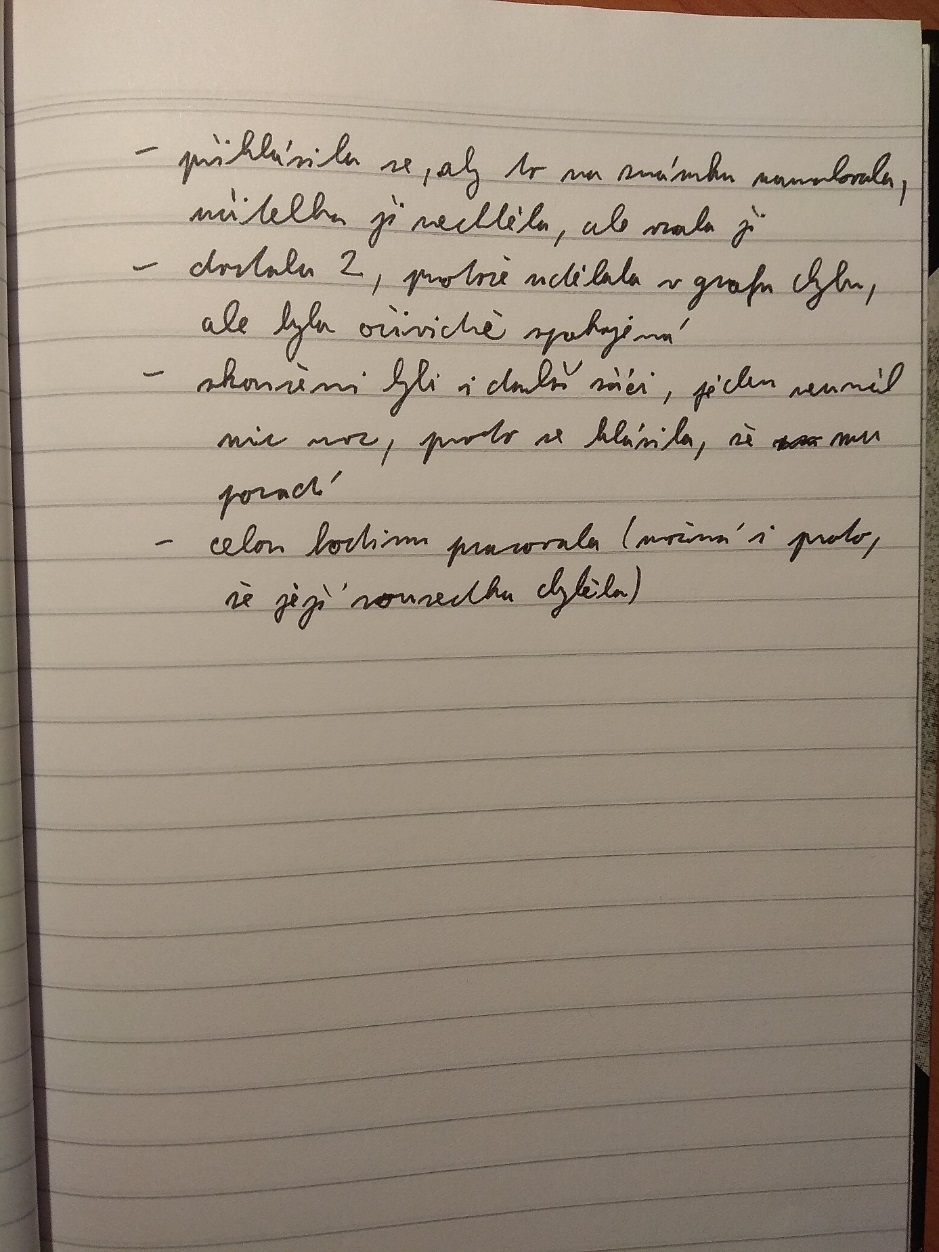 - přihlásila se, aby to na známku namalovala,
učitelka ji nechtěla, ale vzala ji
- dostala 2, protože udělala v grafu chybu,
ale byla očividně spokojená
- zkoušeni byli i další žáci, jeden neuměl
nic moc, proto se hlásila, že mu
poradí
- celou hodinu pracovala (možná i proto,
že její sousedka chyběla)